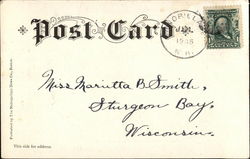 Post Card
Miss Marietta B. Smith,
Sturgeon Bay,
Wisconsin.
This side for address